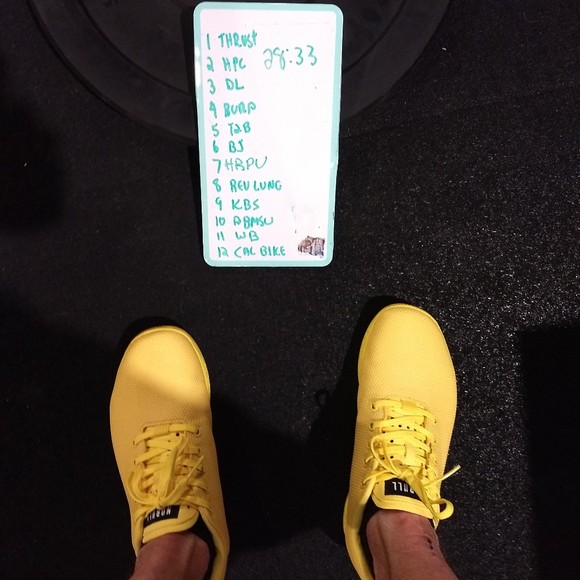 1 THRUST
28:33
2 HPC
3 DL
4 BURP
5 T2B
6 BJ
7 HRPU
8 REV LUNG
9 KBS
10 ABMSU
11 WB
12 CAL BIKE
NOBULL